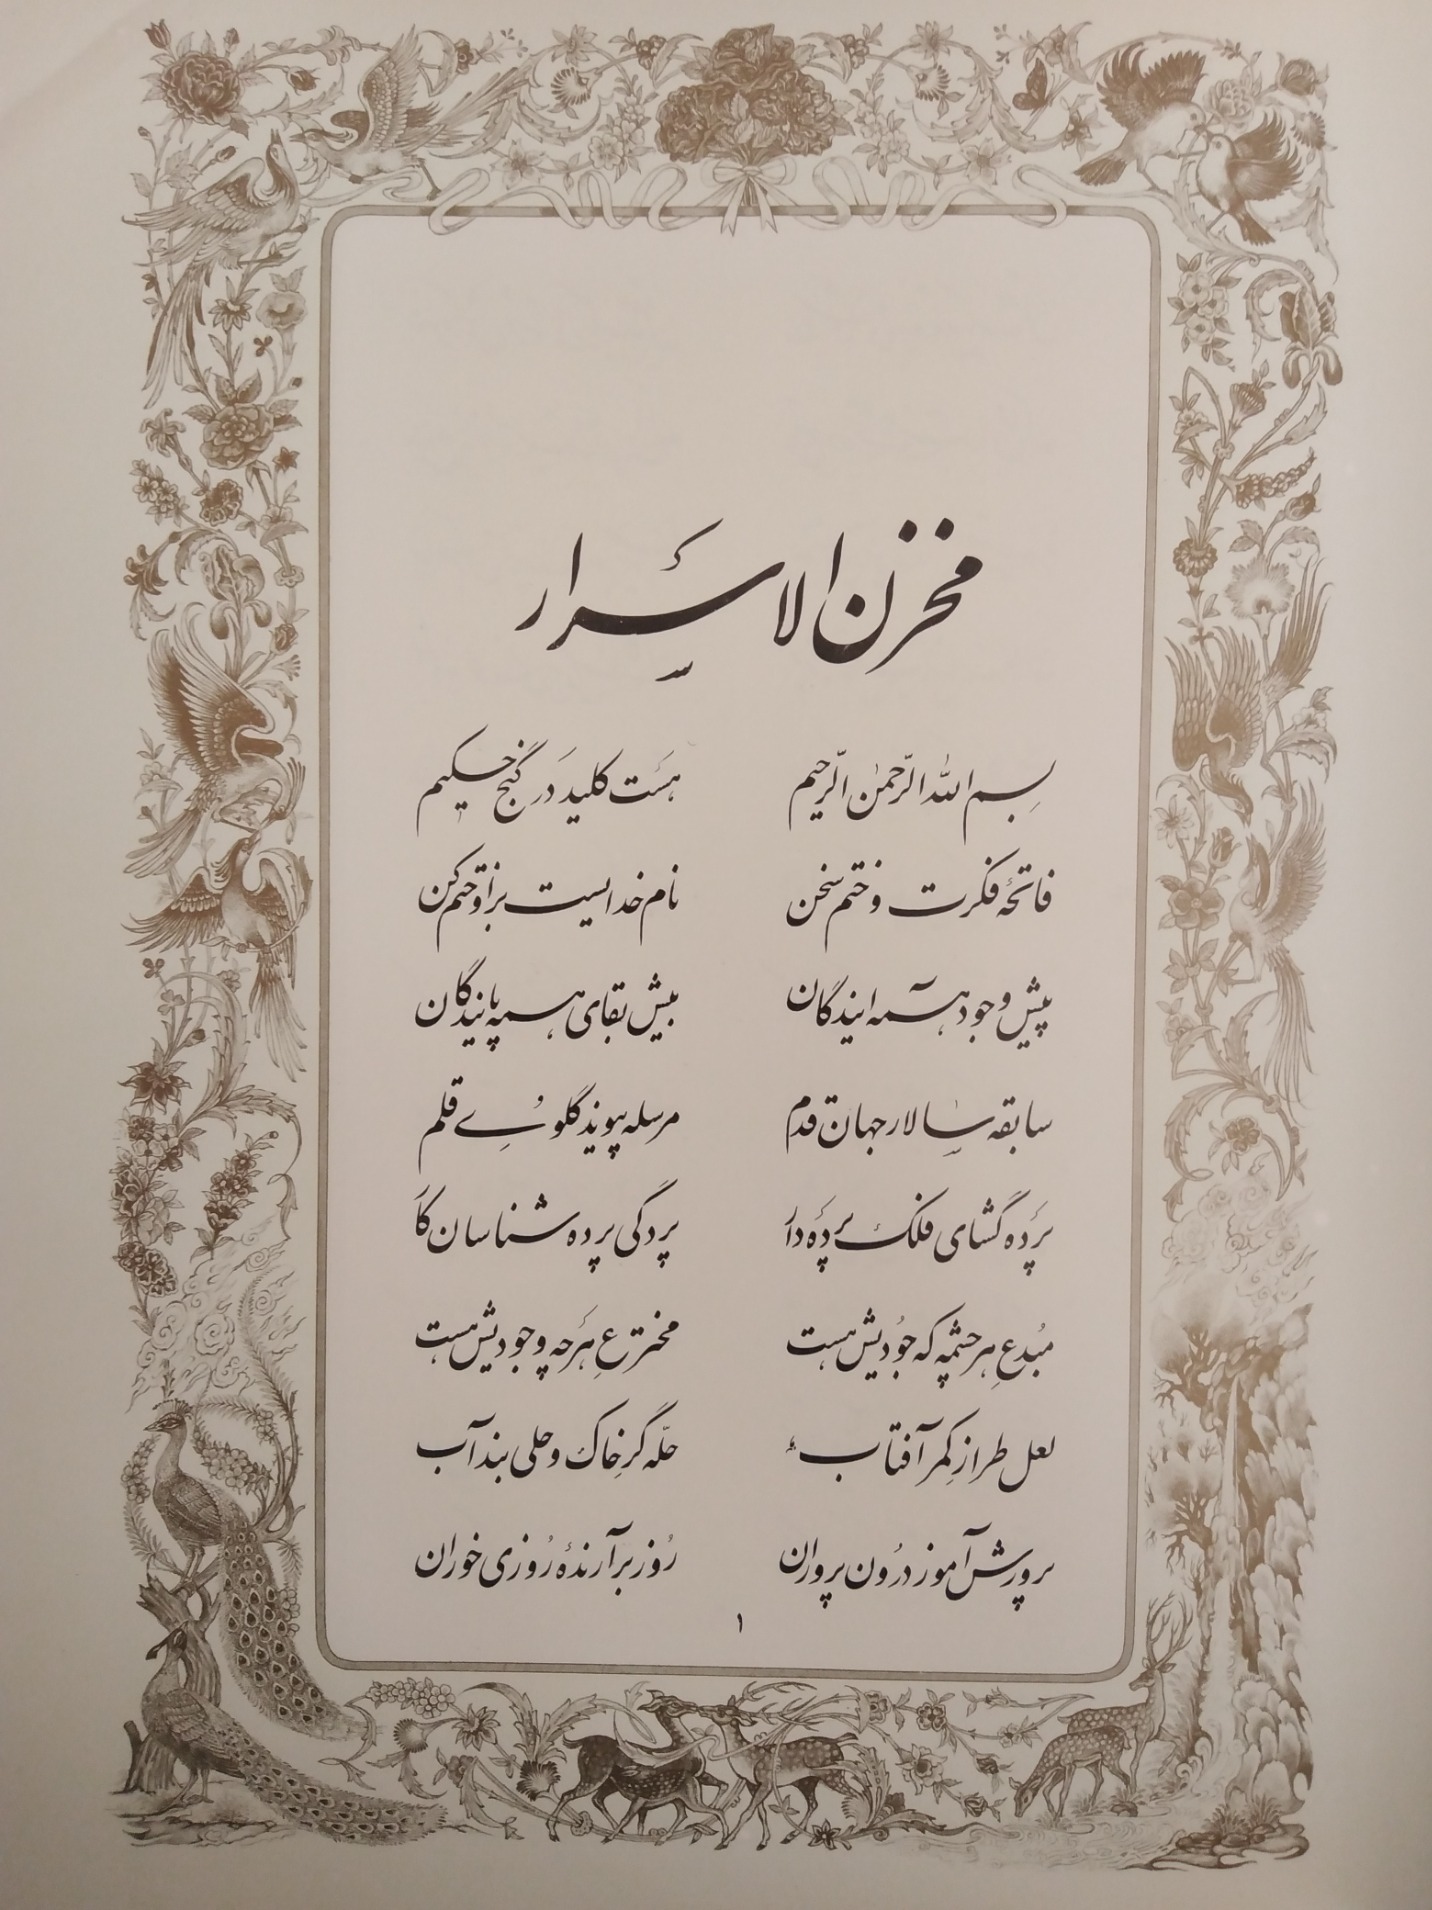 مخزن الاسرار
بسم الله الرّحمٰن الرّحیم هست کلید در گنج حکیم
فاتحهٔ فکرت و ختم سخن نام خدایست بر او ختم کن
پیش وجود همه ایندگان بیش بقای همه پایندگان
سابقه سالار جهان قدم مرسله پیوند گلوی قلم
پرده گشای فلک پرده دار پردگی پرده شناسان کار
مُبدعِ هر چشمه که جُودیش هست مخترعِ هَرچه وجودیش هست
لعل طراز کمر آفتاب حلّه گر خاک و حلی بند آب
پرورش آموز درُون پروران رُوز برآرندهٔ رُوزی خوران
۱